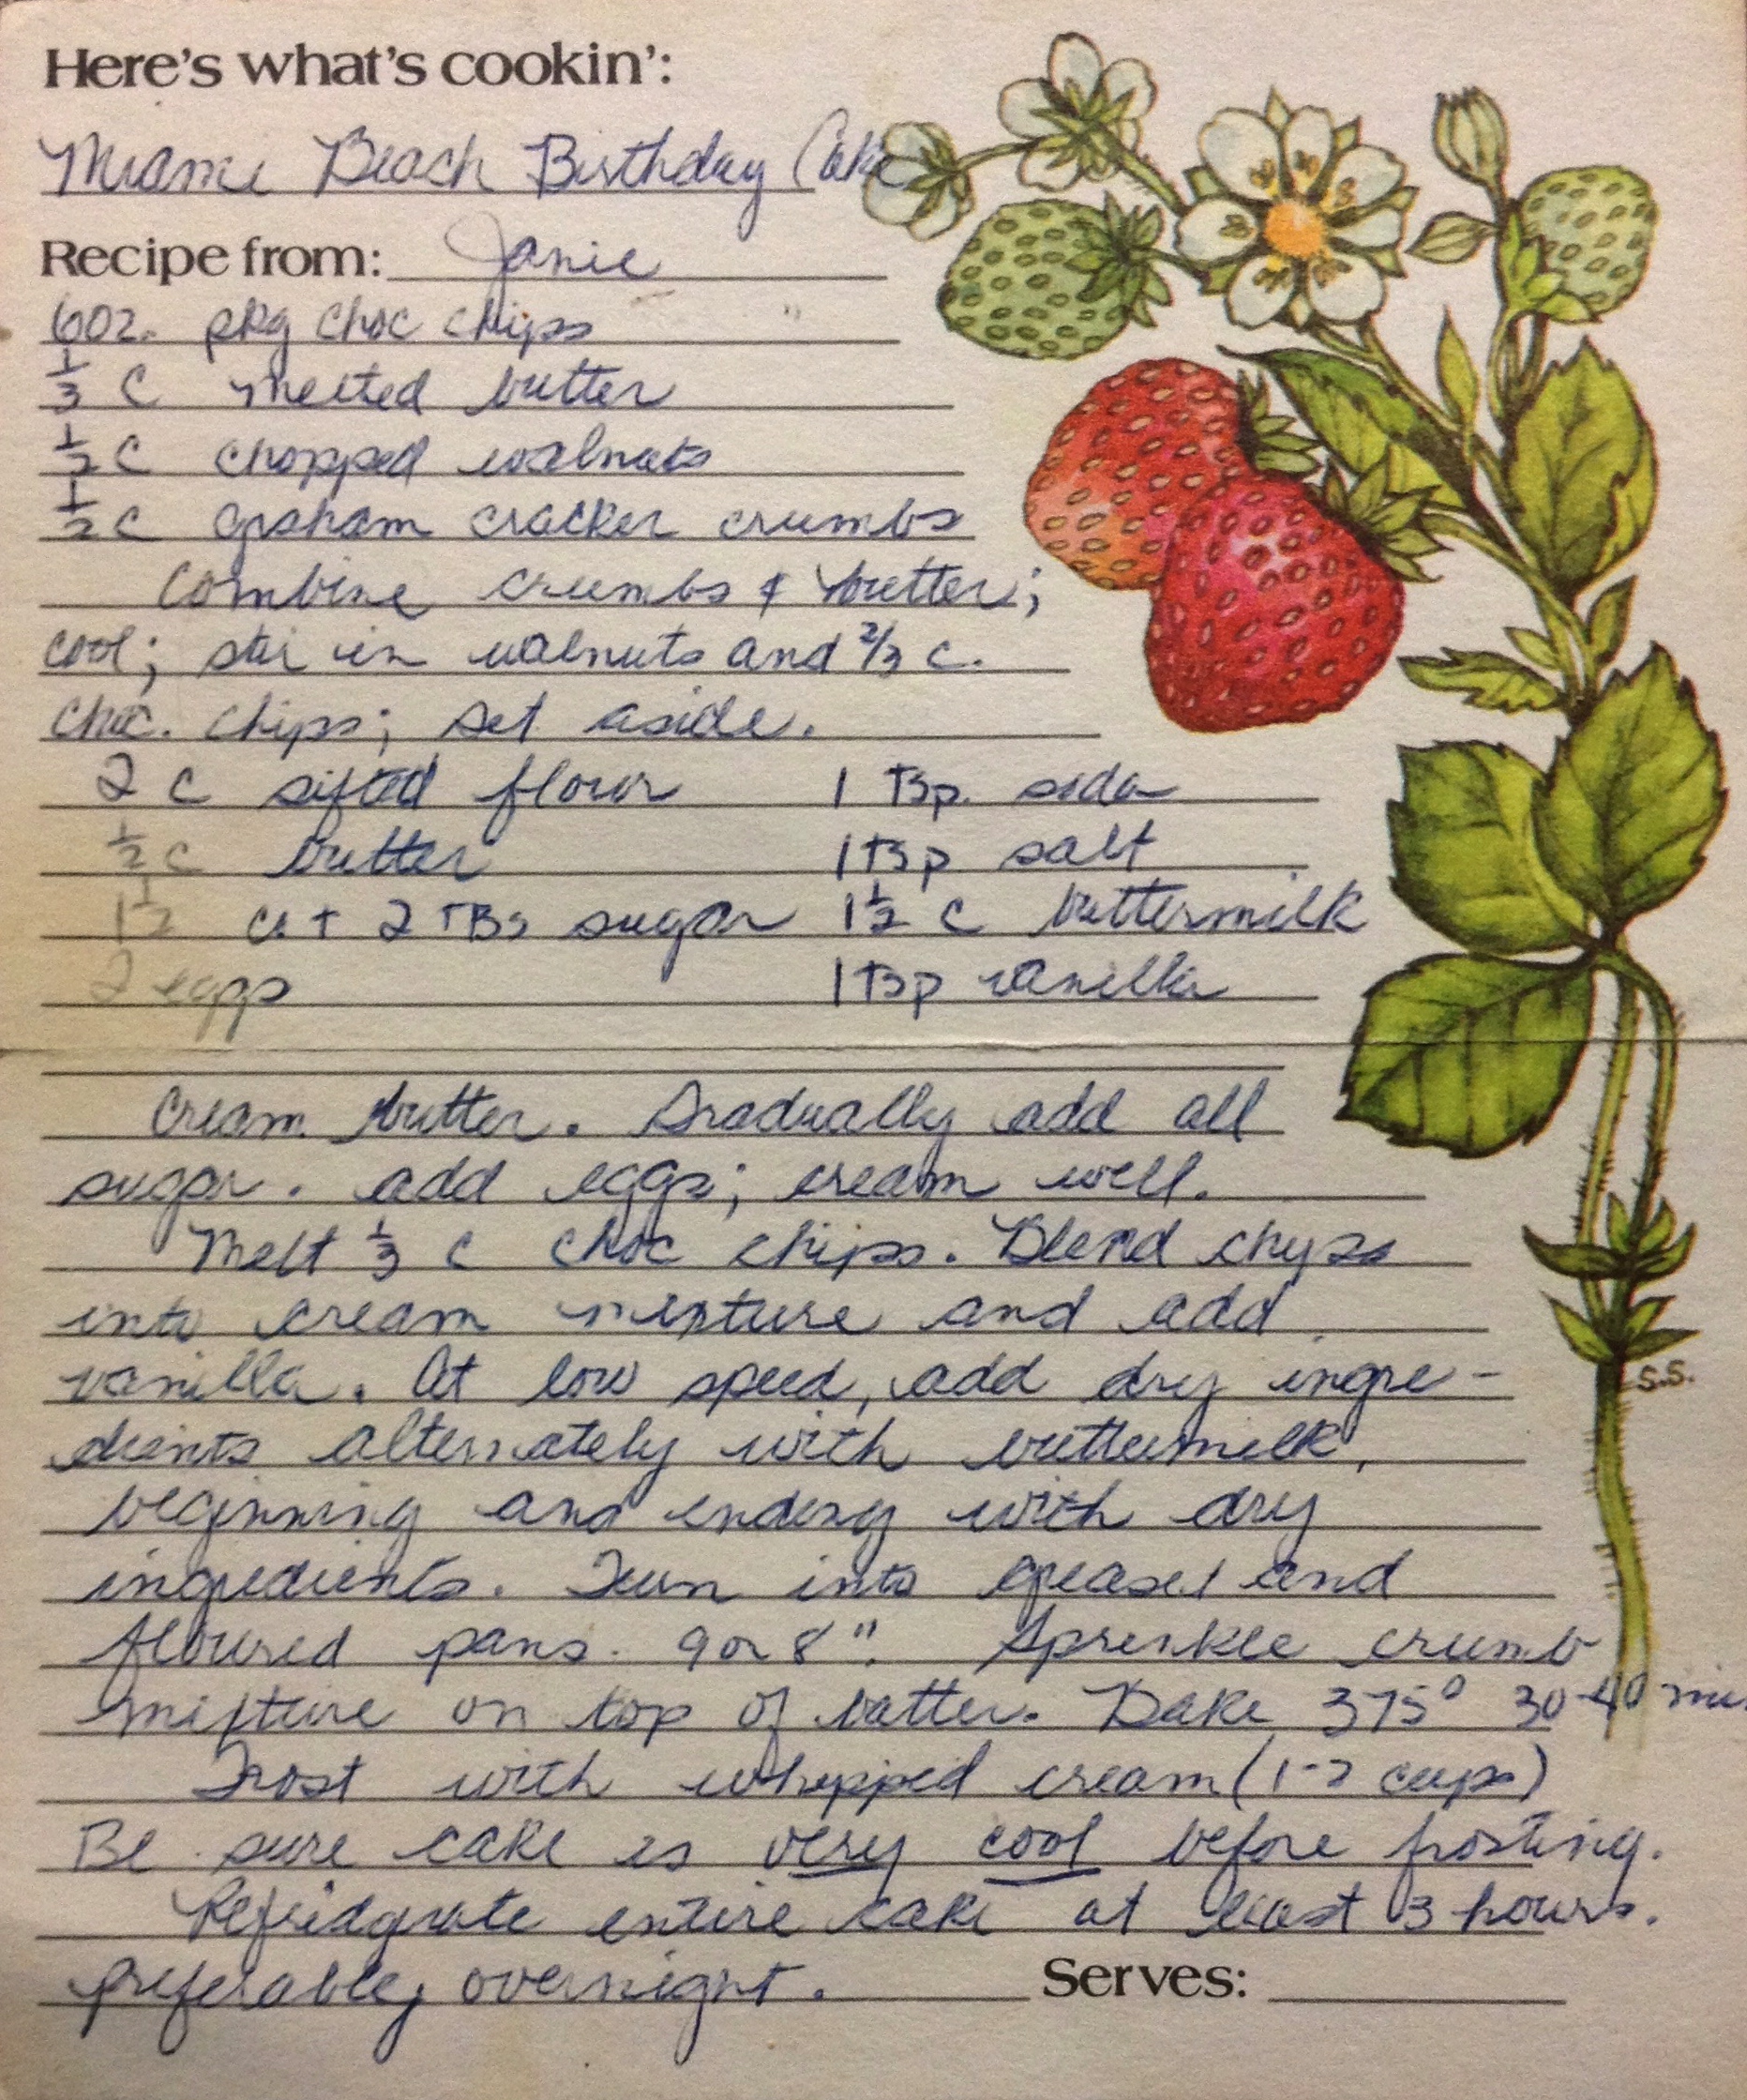 Here's what's cookin':
Miami Beach Birthday Cake
Recipe from: Janie
6 oz. pkg choc chips
1/3 C melted butter
1/2 C chopped walnuts
1/2 C graham cracker crumbs
Combine crumbs & butter;
cool; stir in walnuts and 2/3 c.
choc. chips; set aside.
2 C sifted flour 1 Tsp. soda
1/2 C butter 1 Tsp salt
1 1/2 C. + 2 TBs sugar 1 1/2 C buttermilk
2 eggs 1 Tsp vanilla
Cream butter. Gradually add all
sugar. add eggs; cream well.
Melt 1/3 C choc chips. Blend chips
into cream mixture and add
vanilla. At low speed, add dry ingre-
dients alternately with buttermilk,
beginning and ending with dry
ingredients. Turn into greased and
floured pans. 9 or 8". Sprinkle crumb
mixture on top of batter. Bake 375° 30-40 min.
Frost with whipped cream (1-2 cups)
Be sure cake is very cool before frosting.
Refridgrate entire cake at least 3 hours.
preferable, overnight. Serves:
S.S.